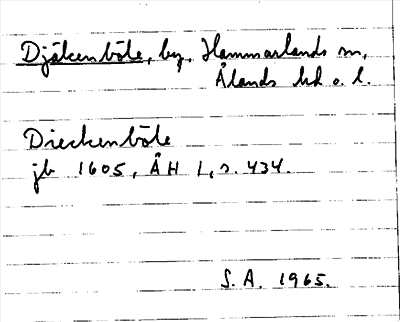 Djäkenböle, by, Hammarlands sn,
Ålands hd o. l.
Dieckenböle
jb 1605, ÅH 1, s. 434.
S. A. 1965.